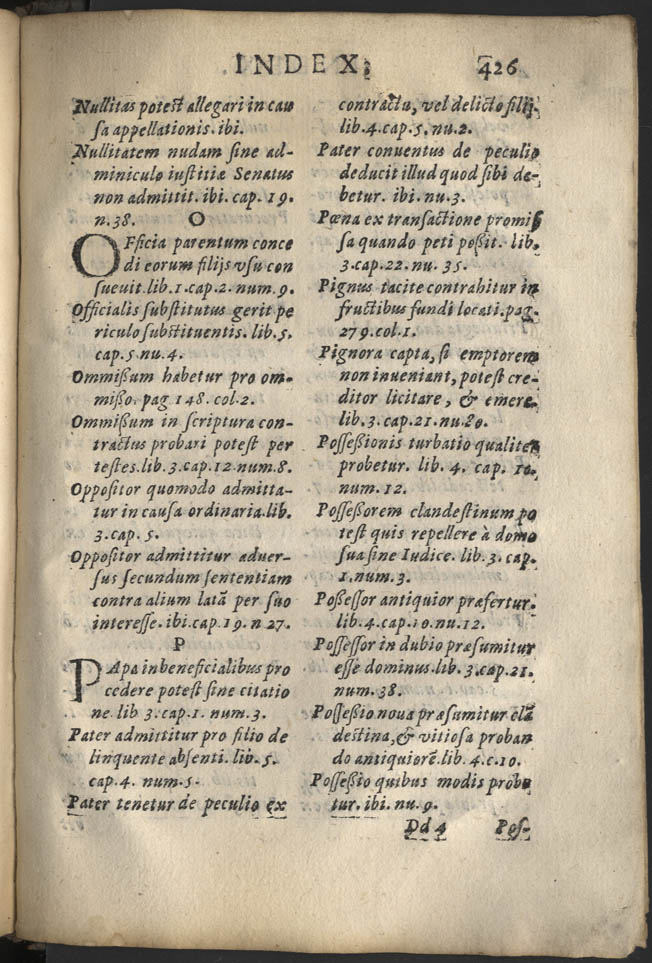 INDEX. 426
Nullitas potest allegari in cau
sa appellationis. ibi.
Nullitatem nudam sine ad-
miniculo iustitiæ Senatus
non admittit. ibi. cap. 19.
n. 38.
O
OFficia parentum conce
di eorum filijs vsu con
sueuit. lib. 1. cap. 2. num. 9.
Officialis substitutus gerit pe
riculo substituentis. lib. 5.
cap. 5. nu. 4.
Ommissum habetur pro om-
misso. pag 148. col. 2.
Ommissum in scriptura con-
tractus probari potest per
testes. lib. 3. cap. 12. num. 8.
Oppositor quomodo admitta-
tur in causa ordinaria. lib.
3. cap. 5.
Oppositor admittitur aduer-
sus secundum sententiam
contra alium latã per suo
interesse. ibi. cap. 19. n 27.
P
PApa in beneficialibus pro
cedere potest sine citatio
ne. lib 3. cap. 1. num. 3.
Pater admittitur pro filio de
linquente absenti. lib. 5.
cap. 4. num. 5.
Pater tenetur de peculio ex
contractu, vel delicto filij.
lib. 4. cap. 5. nu. 2.
Pater conuentus de peculio
deducit illud quod sibi de-
betur. ibi. nu. 3.
Pœna ex transactione promis
sa quando peti possit. lib.
3. cap. 22. nu. 35.
Pignus tacite contrahitur in
fructibus fundi locati. pag.
279. col. 1.
Pignora capta, si emptorem
non inueniant, potest cre-
ditor licitare, & emere.
lib. 3. cap. 21. nu. 20.
Possessionis turbatio qualiter
probetur. lib. 4. cap. 10.
num. 12.
Possessorem clandestinum po
test quis repellere à domo
sua sine Iudice. lib. 3. cap.
1. num. 3.
Possessor antiquior præfertur.
lib. 4. cap. 10. nu. 12.
Possessor in dubio præsumitur
esse dominus. lib. 3. cap. 21.
num. 38.
Possessio noua præsumitur clã
destina, & vitiosa proban
do antiquiorẽ. lib. 4. c. 10.
Possessio quibus modis probe
tur. ibi. nu. 9.
Dd 4 Pos-